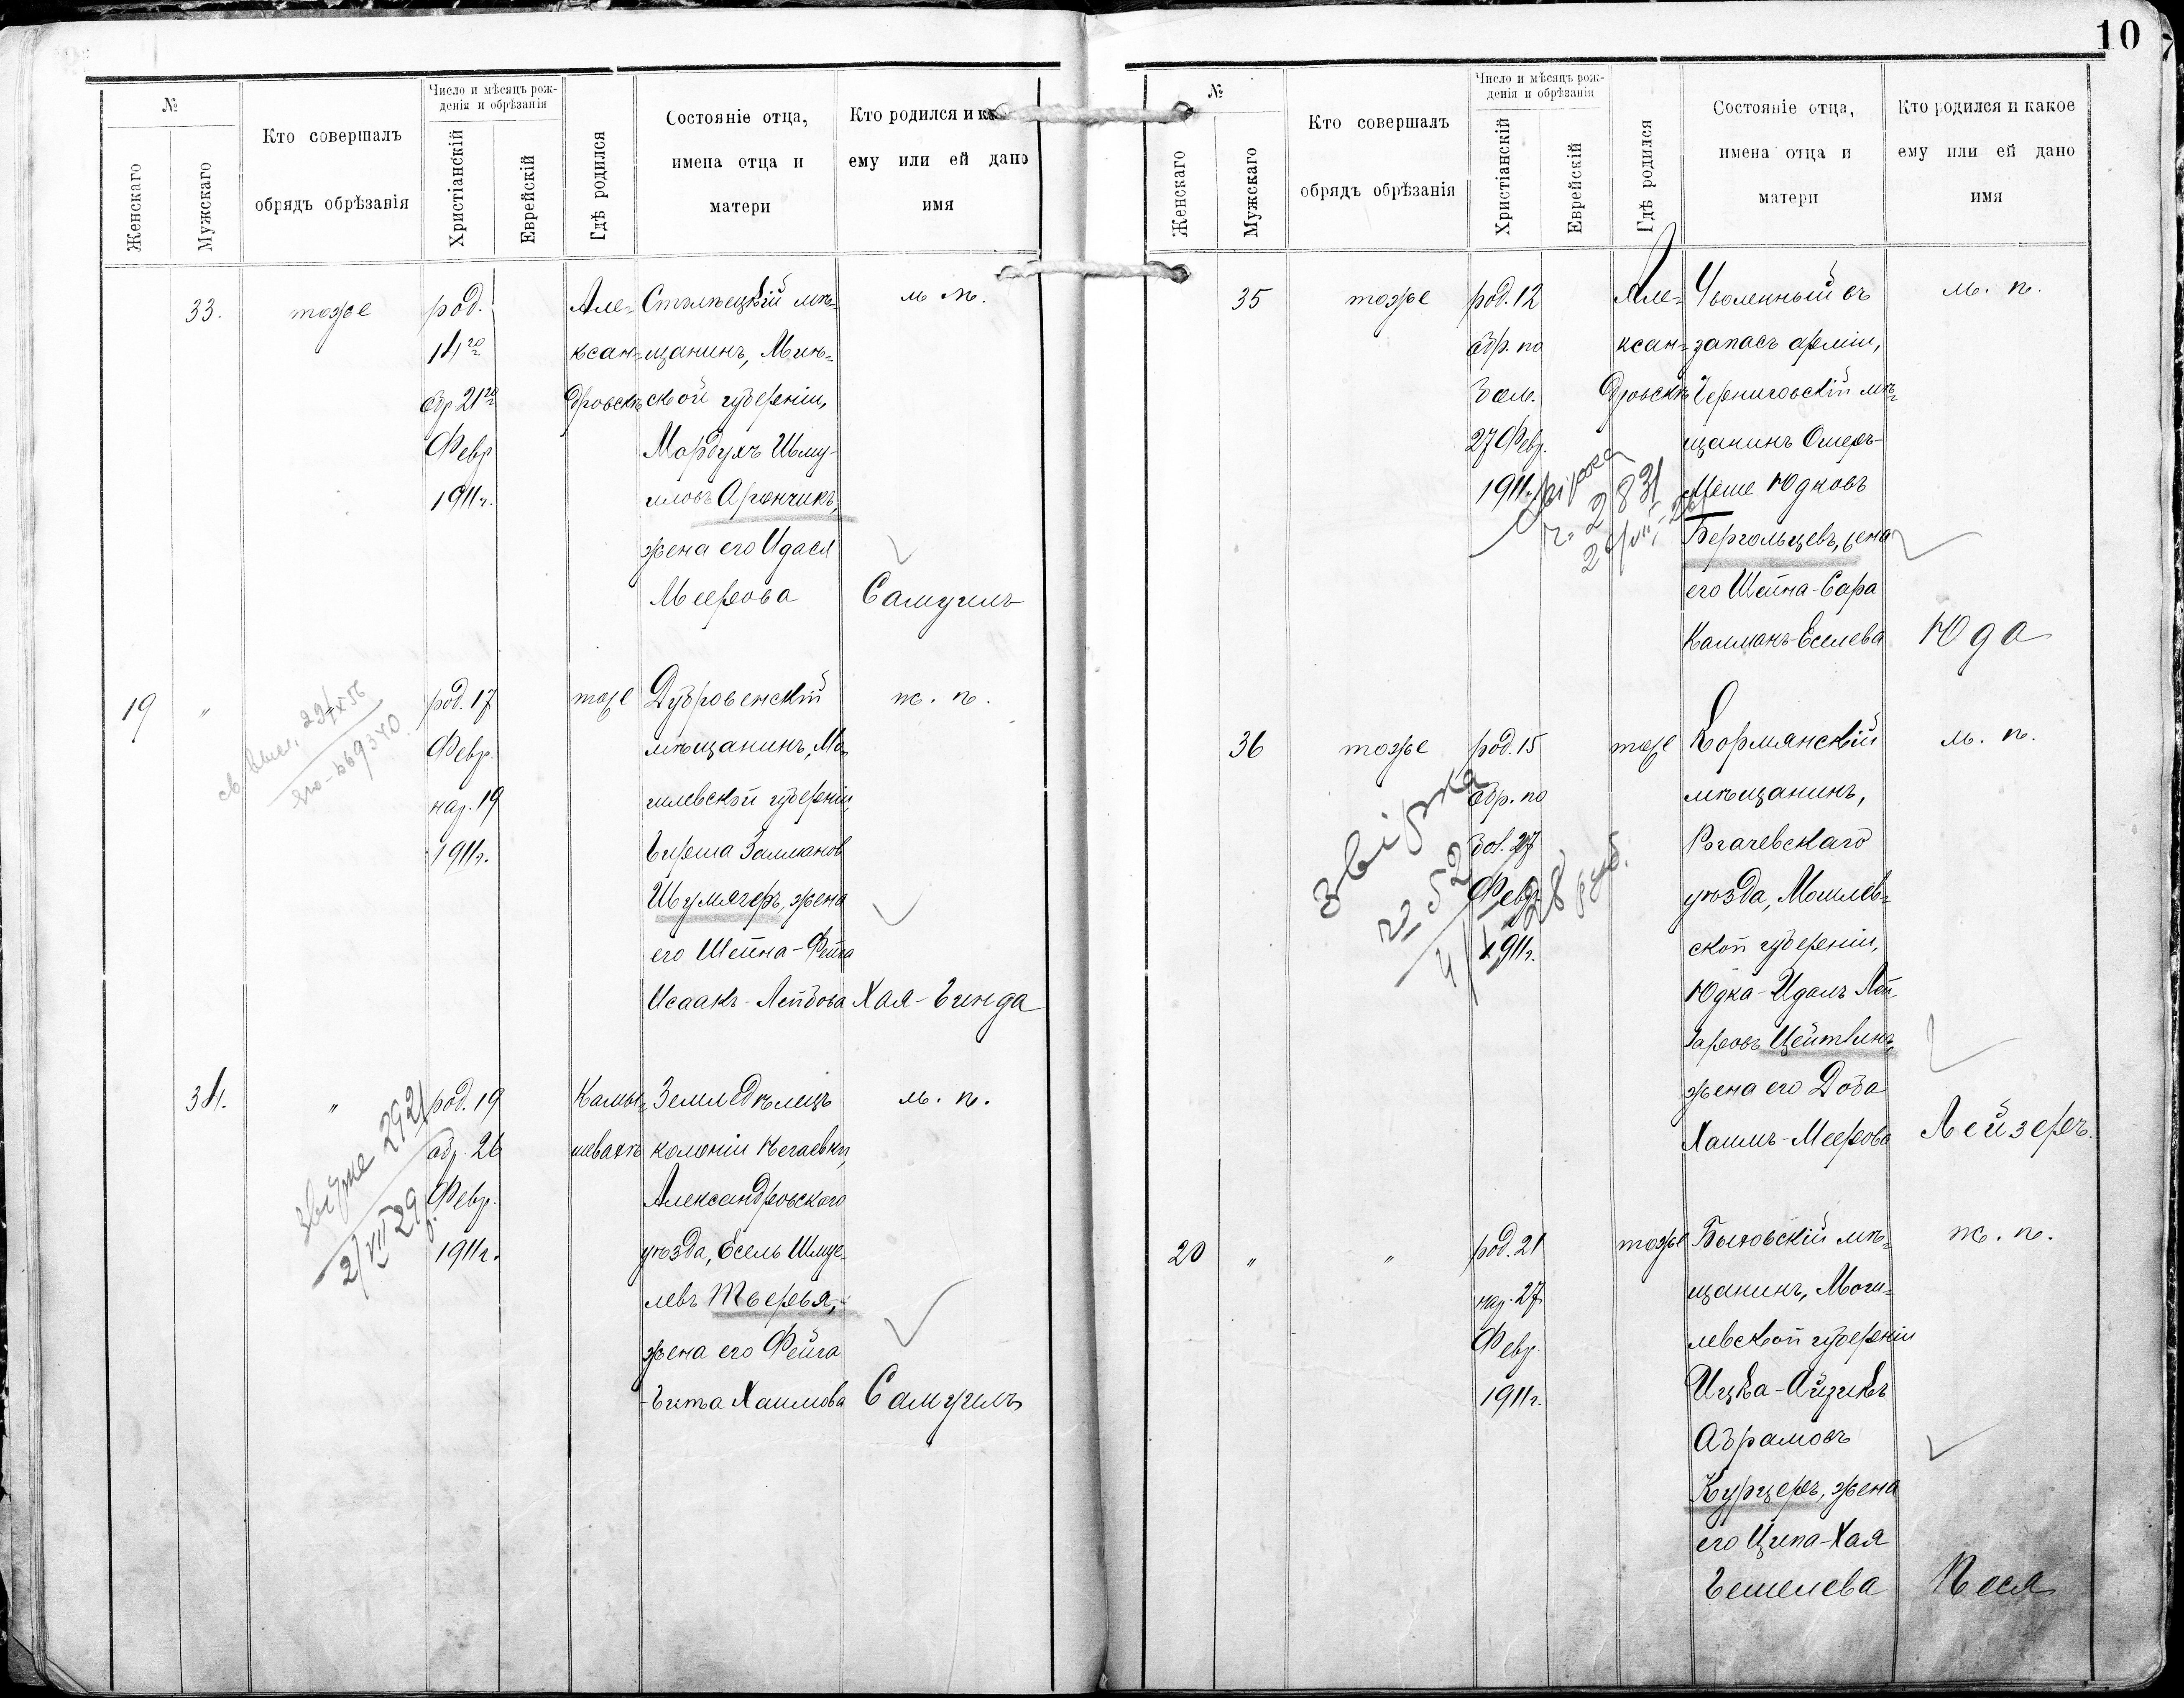 10
№
Женскаго
Мужскаго
Кто совершалъ
обрядъ обрѣзанія
Число и мѣсяцъ рож-
денія и обрѣзанія
Христіанскій
Еврейскій
Гдѣ родился
Состояніе отца,
имена отца и
матери
Кто родился и ка
ему или ей дано
имя
33.
тоже
род.
14го
обр 21го
Февр
1911 г.
Але-
ксан-
дровскѣ
Столпецкій мѣ-
щанинъ, Мин-
ской губерніи,
Мордухъ Шму-
иловъ Арончикъ,
жена его Идася
Меерова
м. п.
Самуилъ
19
"
"
св. выд.
род. 17
Февр.
нар. 19
1911 г.
тоже
Дубровенскій
мѣщанинъ, Мо-
гилевской губерніи,
Гирша Залманов
Шумахеръ, жена
его Шейна-Фейга
Исаакъ-Лейбова
ж. п.
Хая-Гинда
34.
"
звірка 2921
2/VII 29 р.
род. 19
обр. 26
Февр.
1911 г.
Камы-
шевахѣ
Земледѣлецъ
колоніи Нечаевки,
Александровскаго
уѣзда, Есель Шмуе-
левъ Тверья,
жена его Фейга
-Гита Хаимова
м. п.
Самуилъ
№
Женскаго
Мужскаго
Кто совершалъ
обрядъ обрѣзанія
Число и мѣсяцъ рож-
денія и обрѣзанія
Христіанскій
Еврейскій
Гдѣ родился
Состояніе отца,
имена отца и
матери
Кто родился и какое
ему или ей дано
имя
35
тоже
род. 12
обр. по
бол.
27 Февр.
1911 г.
звірка
ч. 2831
Але-
ксан-
дровскѣ
Уволенный въ
запасъ арміи,
Черниговскій мѣ-
щанинъ Ошеръ-
Меше Юдковъ
Бергольцевъ, жена
его Шейна-Сара
Калманъ-Еселева
м. п.
Юда
36
тоже
звірка
ч 522
род. 15
обр. по
бол. 27
Февр.
1911 г.
тоже
Кормянскій
мѣщанинъ,
Рогачевскаго
уѣзда, Могилев-
ской губерніи,
Юдка-Идалъ Лей-
заровъ Цейтлинъ,
жена его Доба
Хаимъ-Меерова
м. п.
Лейзеръ.
20
"
"
род. 21
нар. 27
Февр.
1911 г.
тоже
Быховскій мѣ-
щанинъ, Моги-
левской губерніи
Ицка-Айзикъ
Абрамовъ
Курцеръ, жена
его Ципа-Хая
Гешелева
ж. п.
Песя